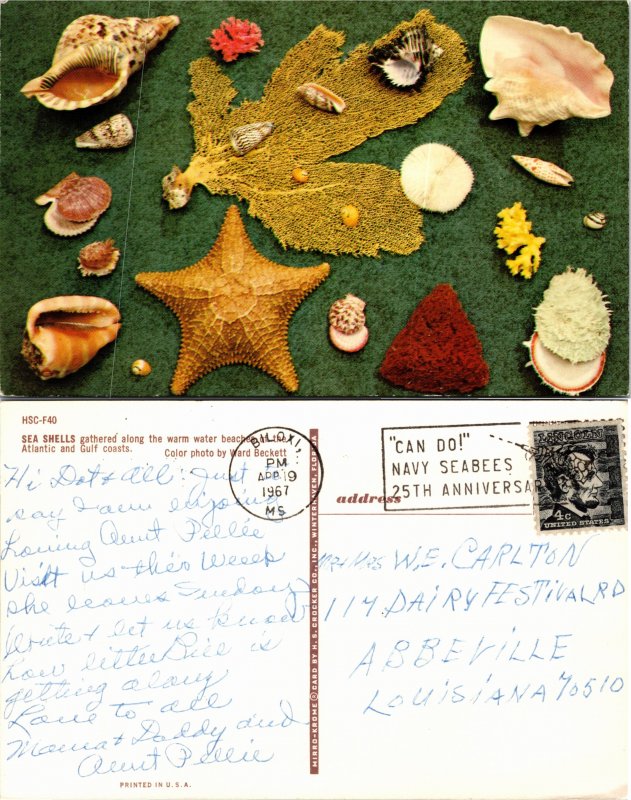 HSC-F40
SEA SHELLS gathered along the warm water beaches of the
Atlantic and Gulf coasts. Color photo by Ward Beckett
Hi Dot & All: Just to
say I am enjoying
having Aunt Pellie
Visit us this Week
she leaves Sunday
Write & let us know
how little Bill is
getting along
Love to all
Mama & Daddy and
Aunt Pellie
PRINTED IN U.S.A.
MIRRO-KROME © CARD BY H. S. CROCKER CO., INC., WINTER HAVEN, FLORIDA
BILOXI,
PM
APR 19
1967
MS
"CAN DO!"
NAVY SEABEES
25TH ANNIVERSA
LINCOLN
4c
UNITED STATES
address
Mr & Mrs W.E. CARLTON
117 DAIRY FESTIVAL RD
ABBEVILLE
LOUISIANA 70510